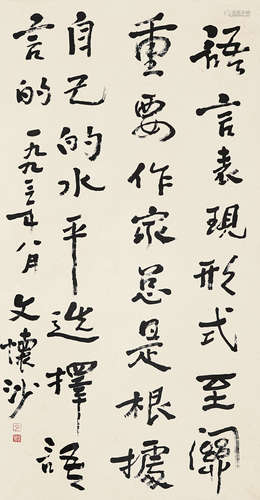 語言表現形式至關
重要作家总是根據
自己的水平选擇語
言的 一九九三年八月 文懷沙